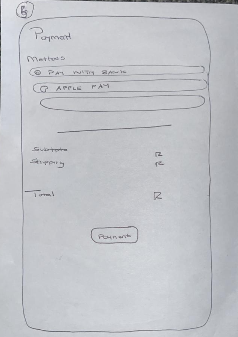 Payment
Method
PAY WITH BANK
APPLE PAY
Subtotal
Shipping
Total
Payment